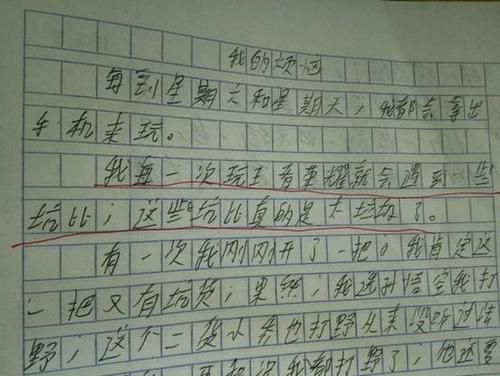 我的烦恼
每到星期六和星期天，我都会拿出
手机来玩。
我每一次玩王者荣耀就会遇到一些
坑比，这些坑比真的是太垃圾了。
有一次我刚刚开了一把。我肯定这
一把又有坑货，果然，我选孙悟空我打
野，这个二货小乔也打野从来没听过法
我都打野了，他还要